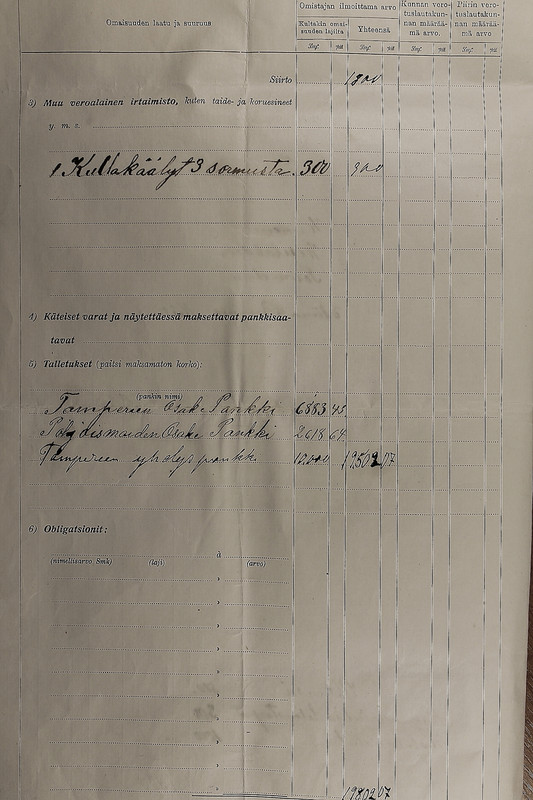 Omaisuuden laatu ja suuruus
Omistajan ilmoittama arvo
Kultakin omai-
suuden lajilta
Yhteensä
Kunnan vero-
tuslautakun-
nan määrää-
mä arvo.
Piirin vero-
tuslautakun-
nan määrää-
mä arvo
Smf. pnä Smf. pnä Smf. pnä Smf. pnä
Siirto
3) Muu veroalainen irtaimisto, kuten taide- ja koruesineet
y. m. s.
1 Kultakäälyt 3 sormusta. 300 300
4) Käteiset varat ja näytettäessä maksettavat pankkisaa-
tavat
5) Talletukset (paitsi maksamaton korko):
(pankin nimi)
Tampereen Osake Pankki 6883 43
Pohjoismaiden Osake Pankki 2618 64
Tampereen yhdyspankki 10,000 19502 07
6) Obligatsionit:
à
(nimellisarvo Smk) (laji) (arvo)
19802 07